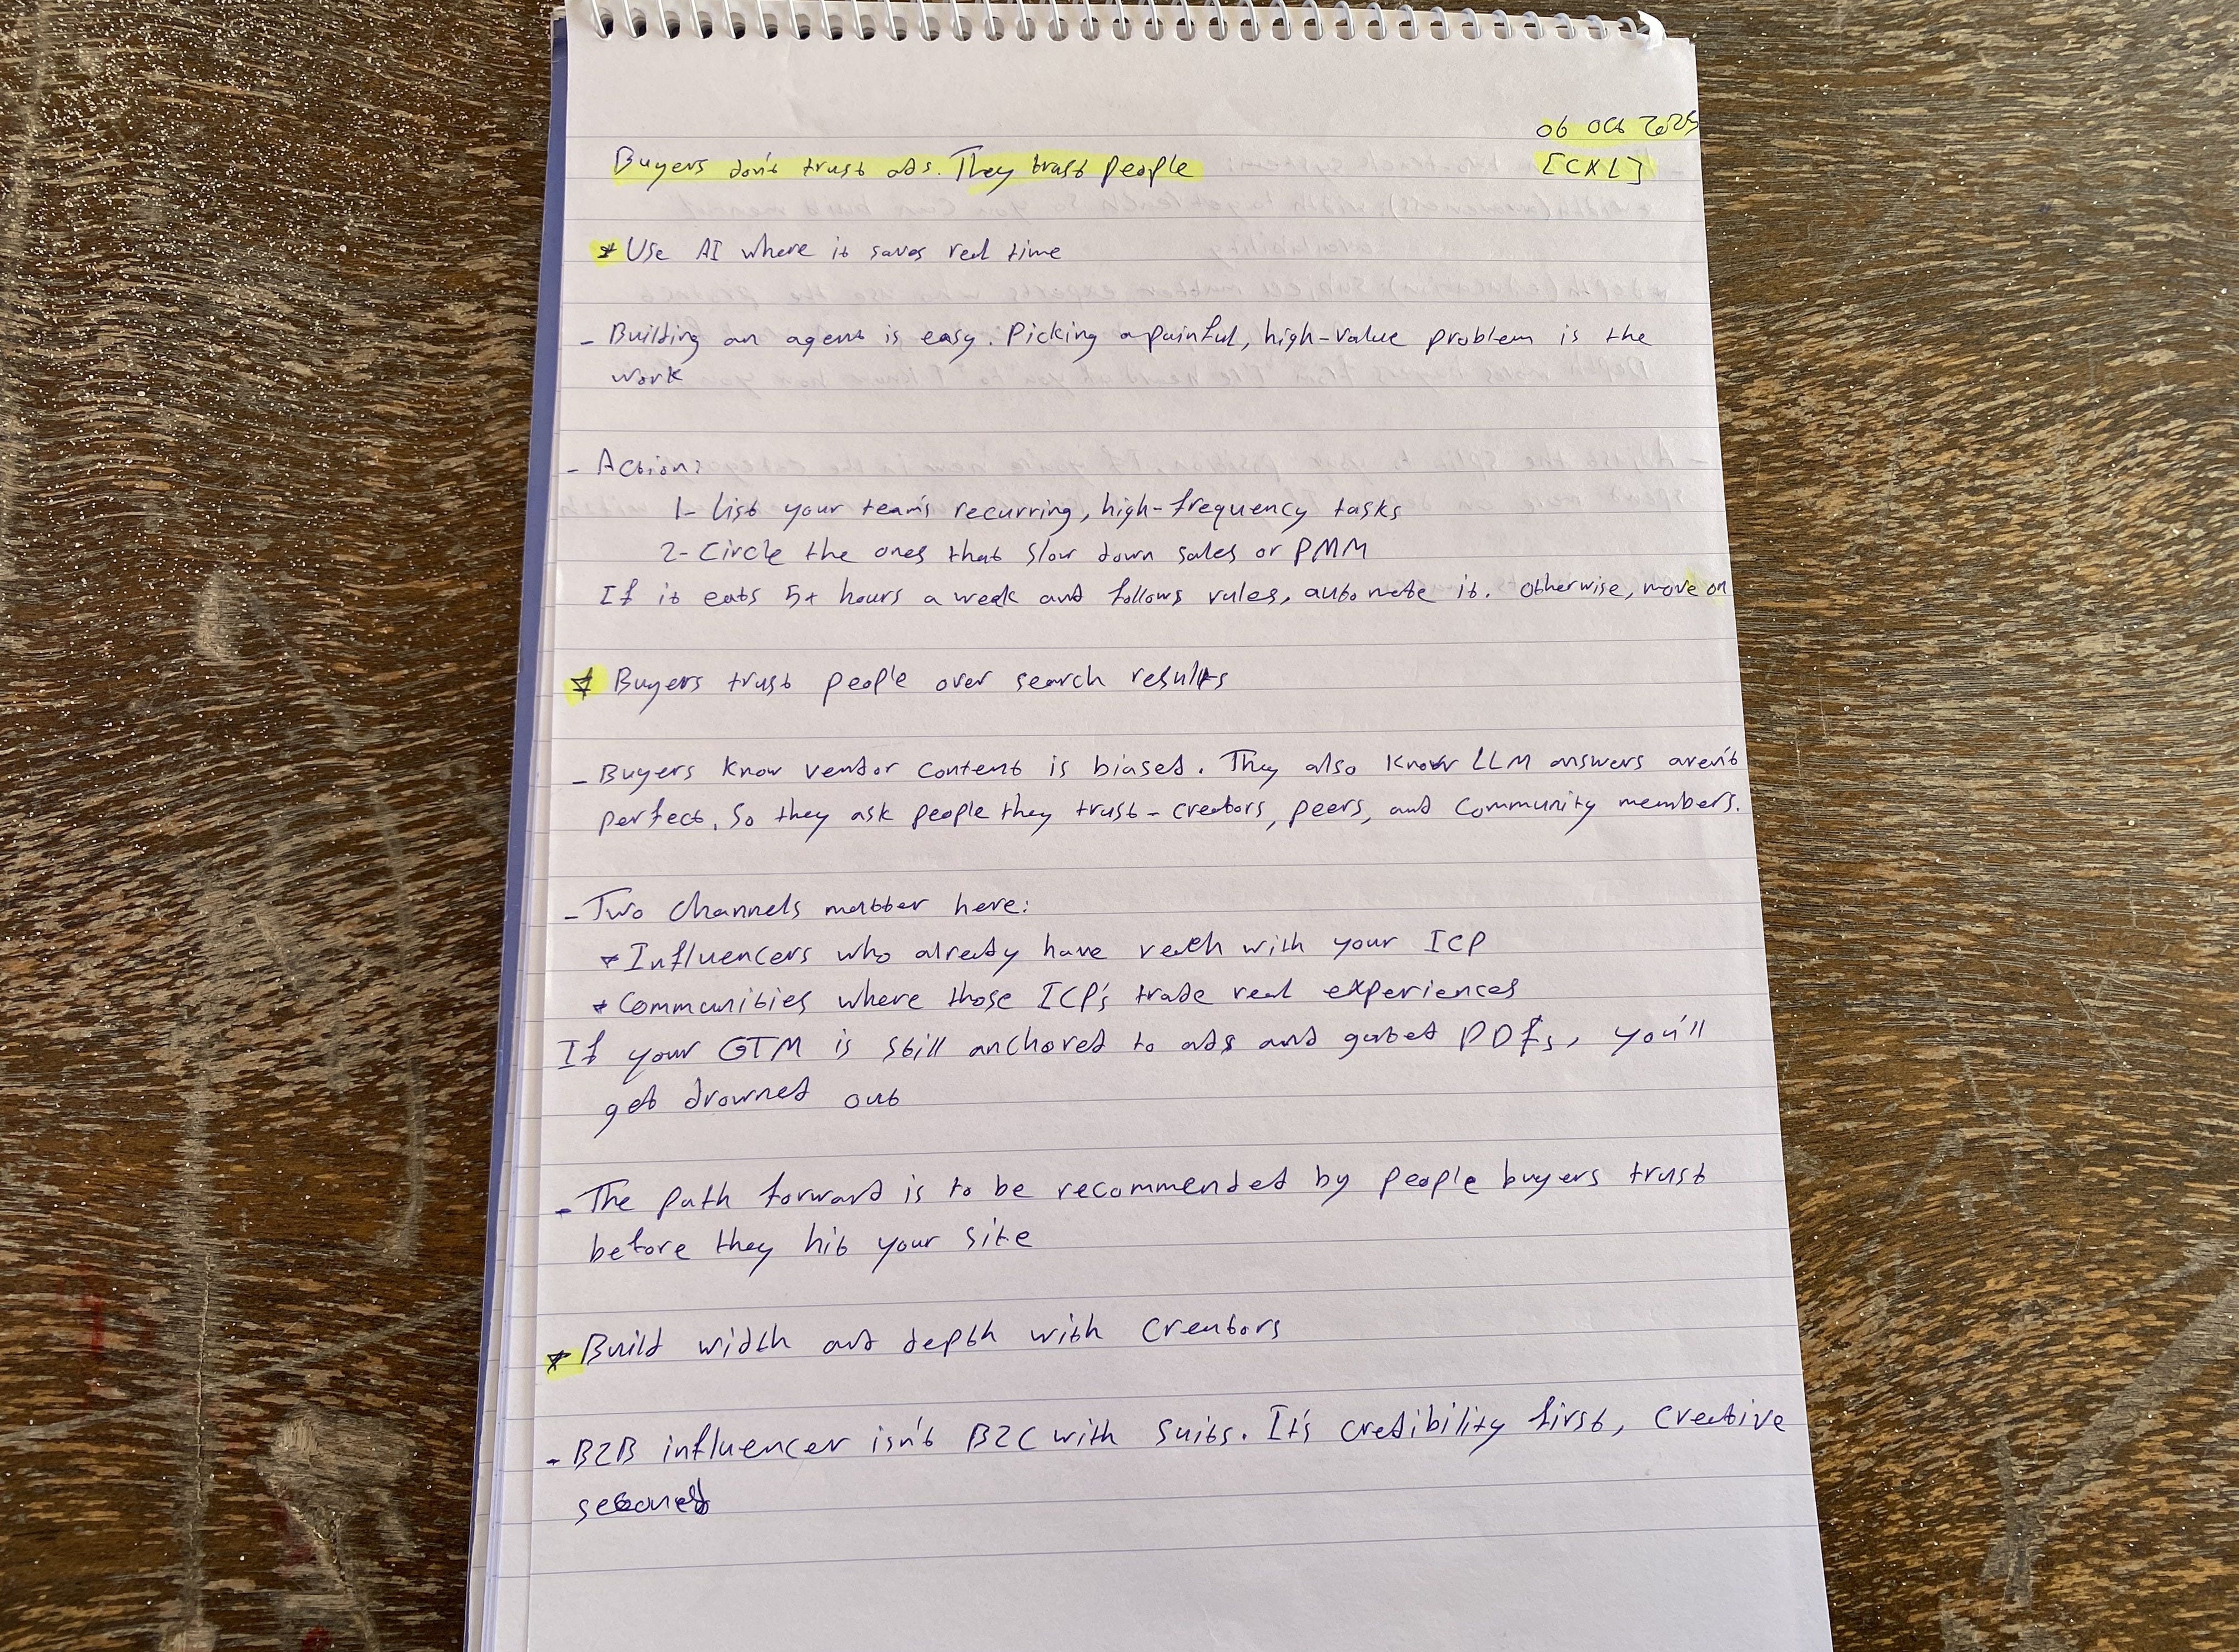 06 Oct 2025
Buyers don't trust ads. They trust people
[CXL]
* Use AI where it saves real time
- Building an agent is easy. Picking a painful, high-value problem is the
work
- Action:
1- List your team's recurring, high-frequency tasks
2- Circle the ones that slow down sales or PMM
If it eats 5+ hours a week and follows rules, automate it. Otherwise, move on
* Buyers trust people over search results
- Buyers know vendor content is biased. They also know LLM answers aren't
perfect. So they ask people they trust - creators, peers, and community members.
- Two channels matter here:
* Influencers who already have reach with your ICP
* Communities where those ICP's trade real experiences
If your GTM is still anchored to ads and gated PDFs, you'll
get drowned out
- The path forward is to be recommended by people buyers trust
before they hit your site
* Build width and depth with creators
- B2B influencer isn't B2C with suits. It's credibility first, creative
second